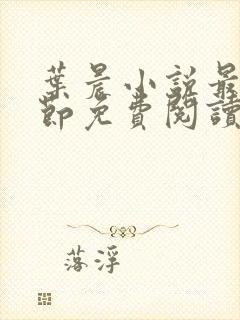 葉晨小說最
節免費閱讀
落浮